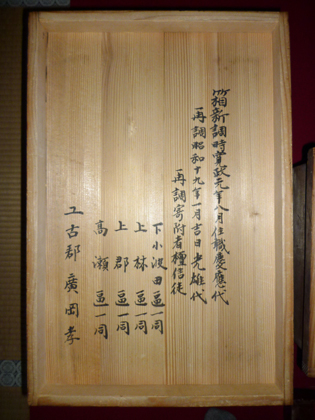 箱新調時寛政元年八月住職慶應代
再調昭和十九年一月吉日光雄代
再調寄附者種信徒
下小波田区一同
上林区一同
上郡区一同
高瀬区一同
工古郡廣岡孝